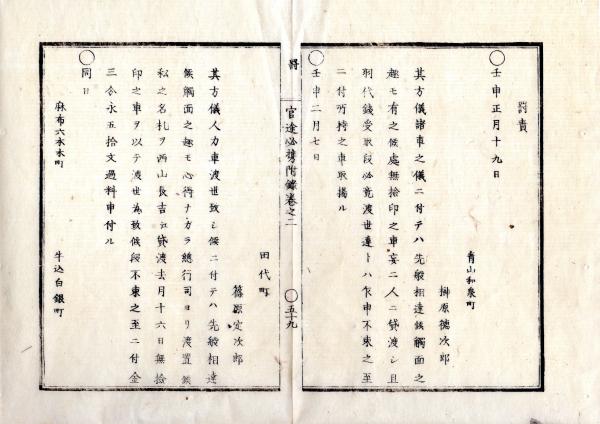 罰責
〇壬申正月十九日
青山和泉町
榊原徳次郎
其方儀諸車之儀ニ付テハ先般相達候觸面之
趣モ有之候處無撿印之車妄ニ人ニ貸渡シ且
羽代錢受取段必竟渡世連トハ乍申不束之至
ニ付所持之車取揚ル
〇壬申二月七日
罰
官途必携附録巻之二
〇五十九
田代町
篠原定次郎
其方儀人力車渡世致シ候ニ付テハ先般相達
候觸面之趣モ心得ナカラ總行司ヨリ渡置候
私之名札ヲ西山長吉江貸渡去月十六日無撿
印之車ヲ以テ渡世為致候段不束之至ニ付金
三分永五拾文過料申付ル
〇同日
麻布六本木町
牛込白銀町